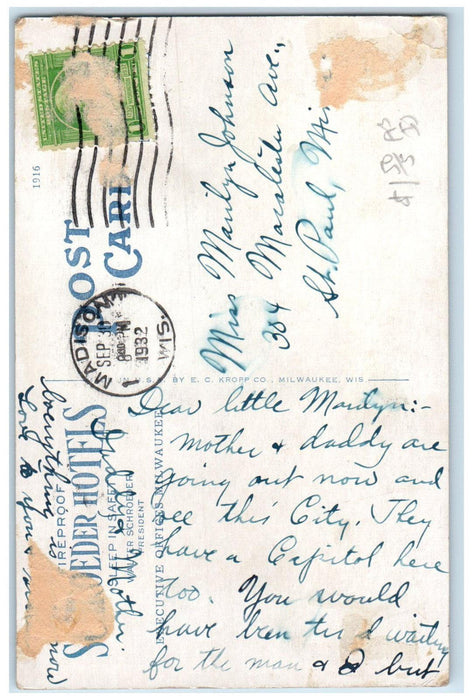 1916
POST
CARD
MADISON
SEP 30
8 PM
1932
WIS.
Miss Marilyn Johnson
384 Macalester Ave.,
St. Paul,
BY E. C. KROPP CO., MILWAUKEE, WIS
HOTELS
FIREPROOF
SLEEP IN SAFETY
WALTER SCHROEDER
PRESIDENT
EXECUTIVE OFFICES MILWAUKEE
Dear little Marilyn:-
mother & daddy are
going out now and
see this City. They
have a Capitol here
too. You would
have been tired waiting
for the man & D but
everything is now
Love to you &
Daddy &
Mother